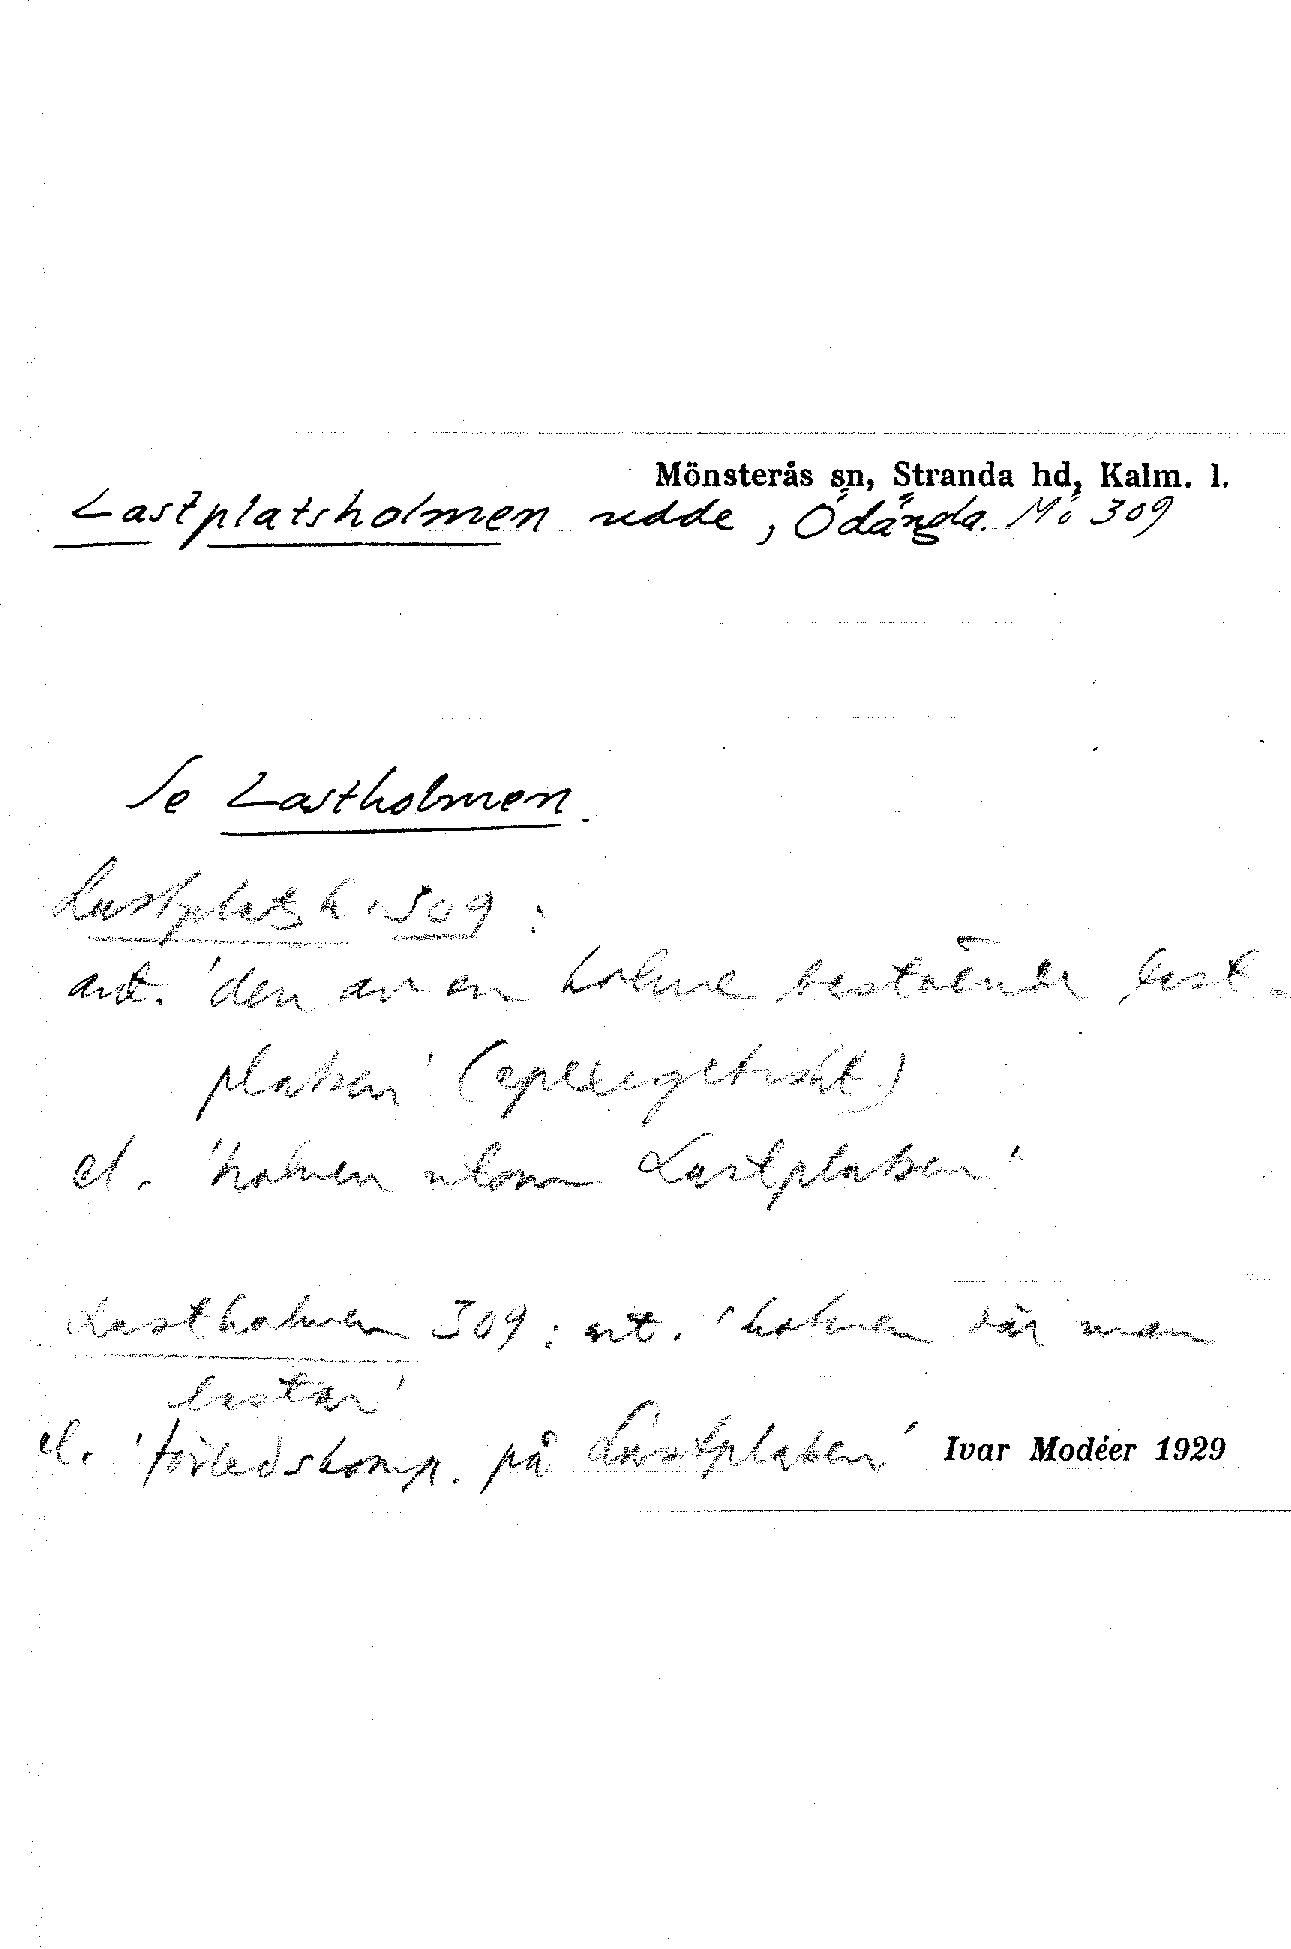 Mönsterås sn, Stranda hd, Kalm. l.
Lastplatsholmen udde, Ödängla. Mö 309
Se Lastholmen.
Lastplatsh. 309:
ant. 'den av en holme bestående last-
platsen' (epexegetiskt)
el. 'holmen utom Lastplatsen'
Lastholmen 309: ant. 'holmen där man
lastar'
el. 'förledskomp. på Lastplatsen'
Ivar Modéer 1929